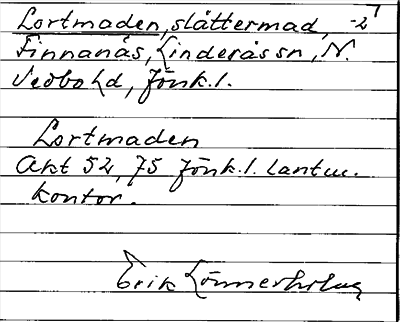 Lortmaden, slåttermad, -2
Finnanås, Linderås sn, N.
Vedbo hd, Jönk. l.
Lortmaden
Akt 52, 75 Jönk. l. lantm.
kontor.
Erik